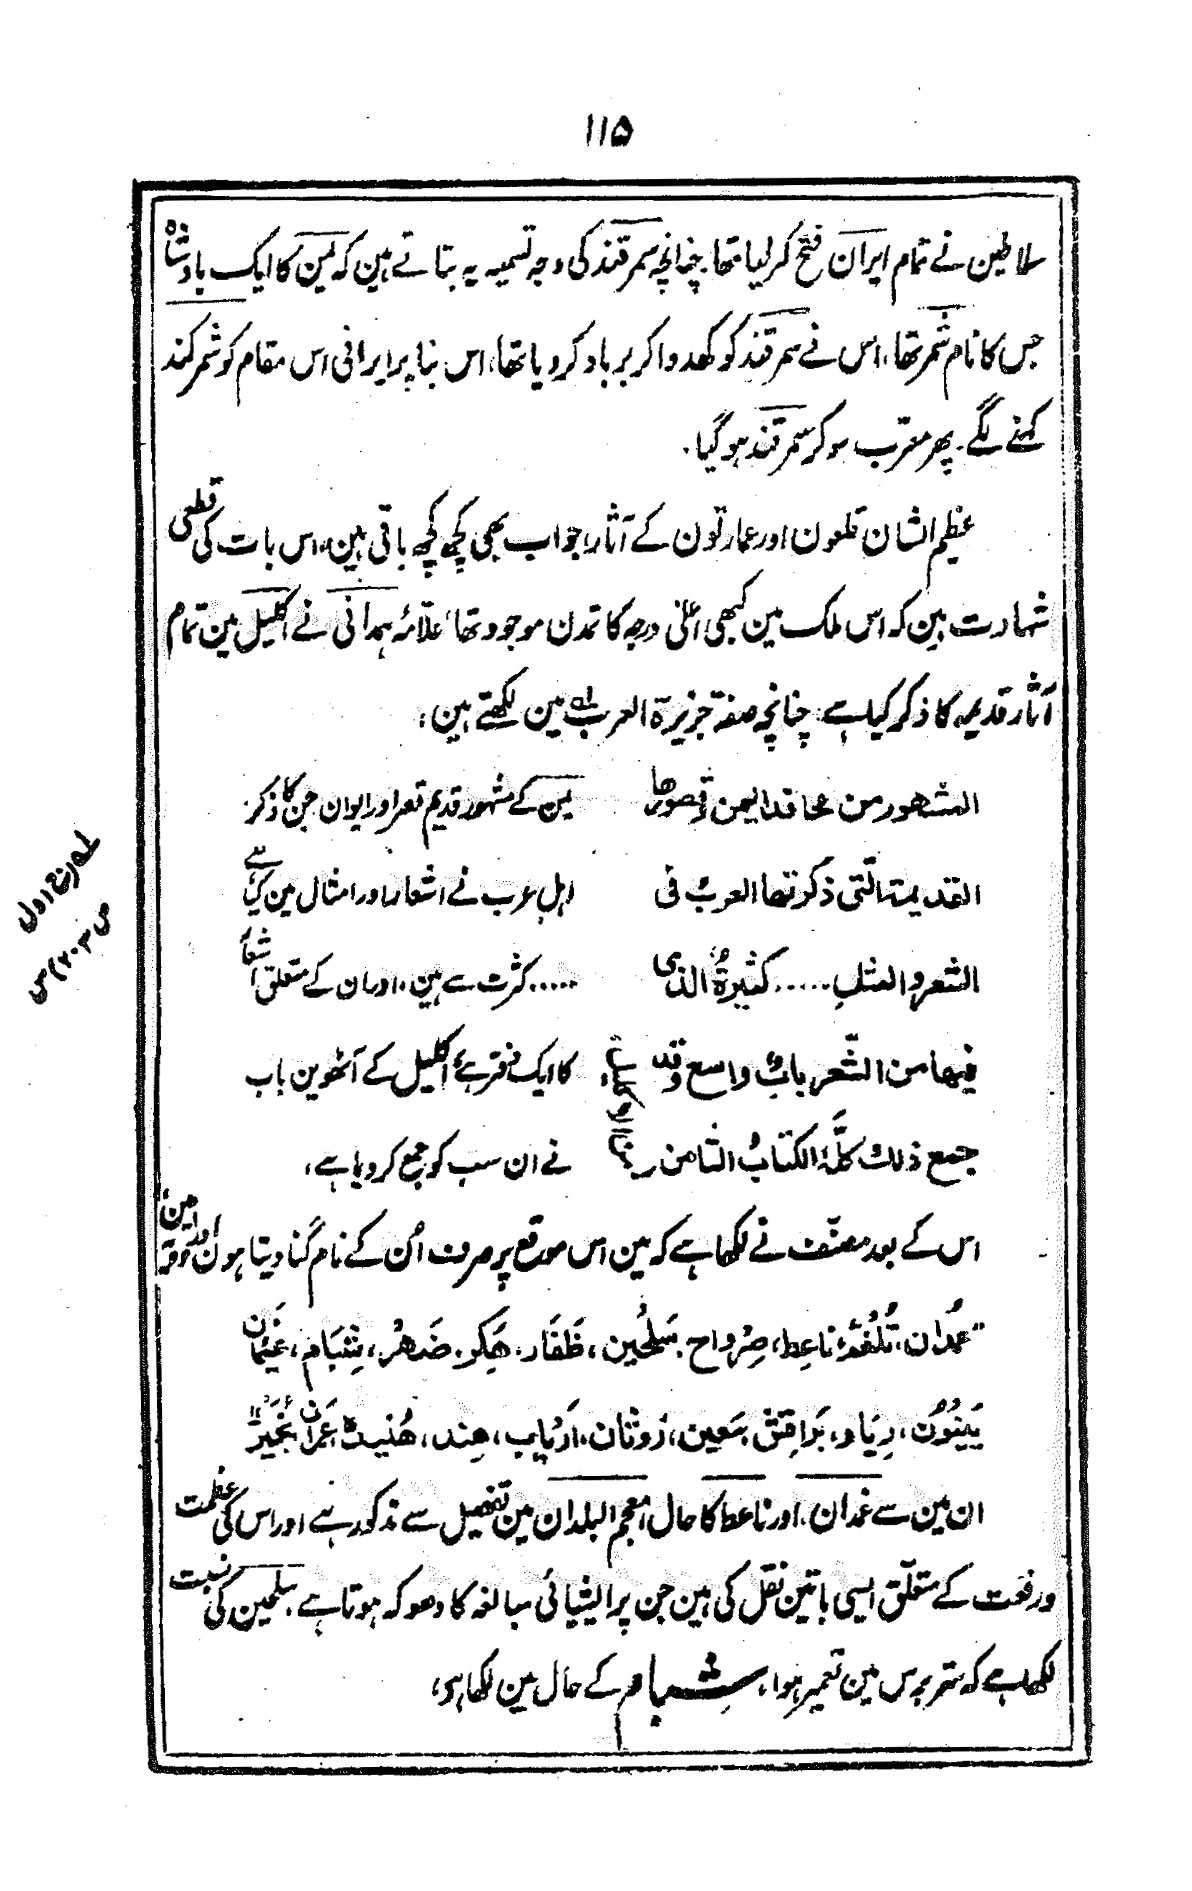 ۱۱۵
سلاطین نے تمام ایران فتح کر لیا تھا، چنانچہ سمرقند کی وجہ تسمیہ یہ بتاتے ہین کہ یمن کا ایک بادشاہ
جس کا نام شمر تھا، اس نے سمرقند کو کھدوا کر برباد کر دیا تھا، اس بنا پر ایرانی اس مقام کو شمر کند
کہنے لگے۔ پھر معرّب ہو کر سمرقند ہو گیا۔
عظیم الشان قلعون اور عمارتون کے آثار، جو اب بھی کچھ کچھ باقی ہین، اس بات کی قطعی
شہادت ہین کہ اس ملک مین کبھی اعلٰی درجہ کا تمدن موجود تھا، علّامہ ہمدانی نے اکلیل مین تمام
آثار قدیمہ کا ذکر کیا ہے، چنانچہ صفۃ جزیرۃ العرب لہ مین لکھتے ہین:
المشهور من محافد الیمن وقصورها
یمن کے مشہور قدیم قصر اور ایوان جن کا ذکر
القدیمۃ الّتی ذکرتها العربُ فی
اہل عرب نے اشعار اور امثال مین کیا ہے
الشعر والمثلِ ..... کثیرةٌ الذی
..... کثرت سے ہین، اور ان کے متعلق اشعار
فیها من الشّعر بابٌ واسع وقد
کا ایک دفتر ہے، اکلیل کے آٹھوین باب
جمع ذلك کلّهٗ الکتابُ الثامن
نے ان سب کو جمع کر دیا ہے،
من الاکلیل
لہ تاریخ اول
ص ۲۰۳) س
اس کے بعد مصنّف نے لکھا ہے کہ مین اس موقع پر صرف اُن کے نام گنا دیتا ہون اور وہ یہ ہین
"غمدان، تُلفُم، ناعِط، صِرواح، سَلحِین، ظَفَار، هَکِر، ضَهْر، شِبَام، غَیمَان
بَینُون، رِیَام، بَرَاقِش، مَعِین، رَوثَان، اَریَاب، هِند، هُنَیدة، عَمرَان، نُجَیر"
ان مین سے غمدان، اور ناعط کا حال معجم البلدان مین تفصیل سے مذکور ہے اور اس کی عظمت
و رفعت کے متعلّق ایسی باتین نقل کی ہین جن پر ایشیائی مبالغہ کا دھوکہ ہوتا ہے، سلحین کی نسبت
لکھا ہے کہ ستر برس مین تعمیر ہوا، شبام کے حال مین لکھا ہو،